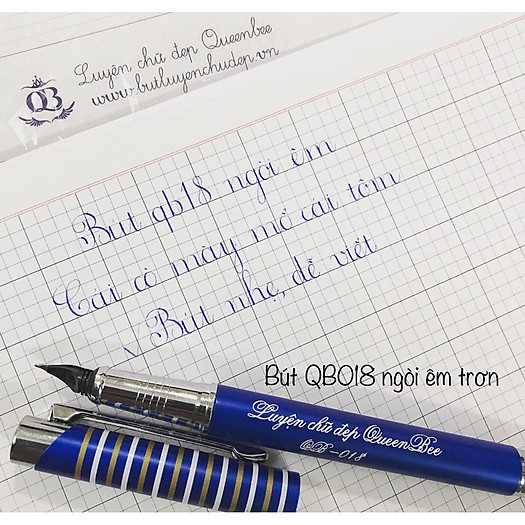 QB
Luyện chữ đẹp Queenbee
www.butluyenchudep.vn
Bút qb18 ngòi êm
Cái cò mày mổ cái tôm
Bút nhẹ, dễ viết
Bút QB018 ngòi êm trơn
Luyện chữ đẹp QueenBee
QB-018